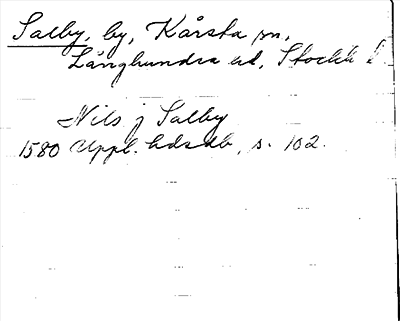 Salby, by, Kårsta sn,
Långhundra hd, Stockh l
Nils j Salby
1580 Uppl. hdsdb, s. 102.